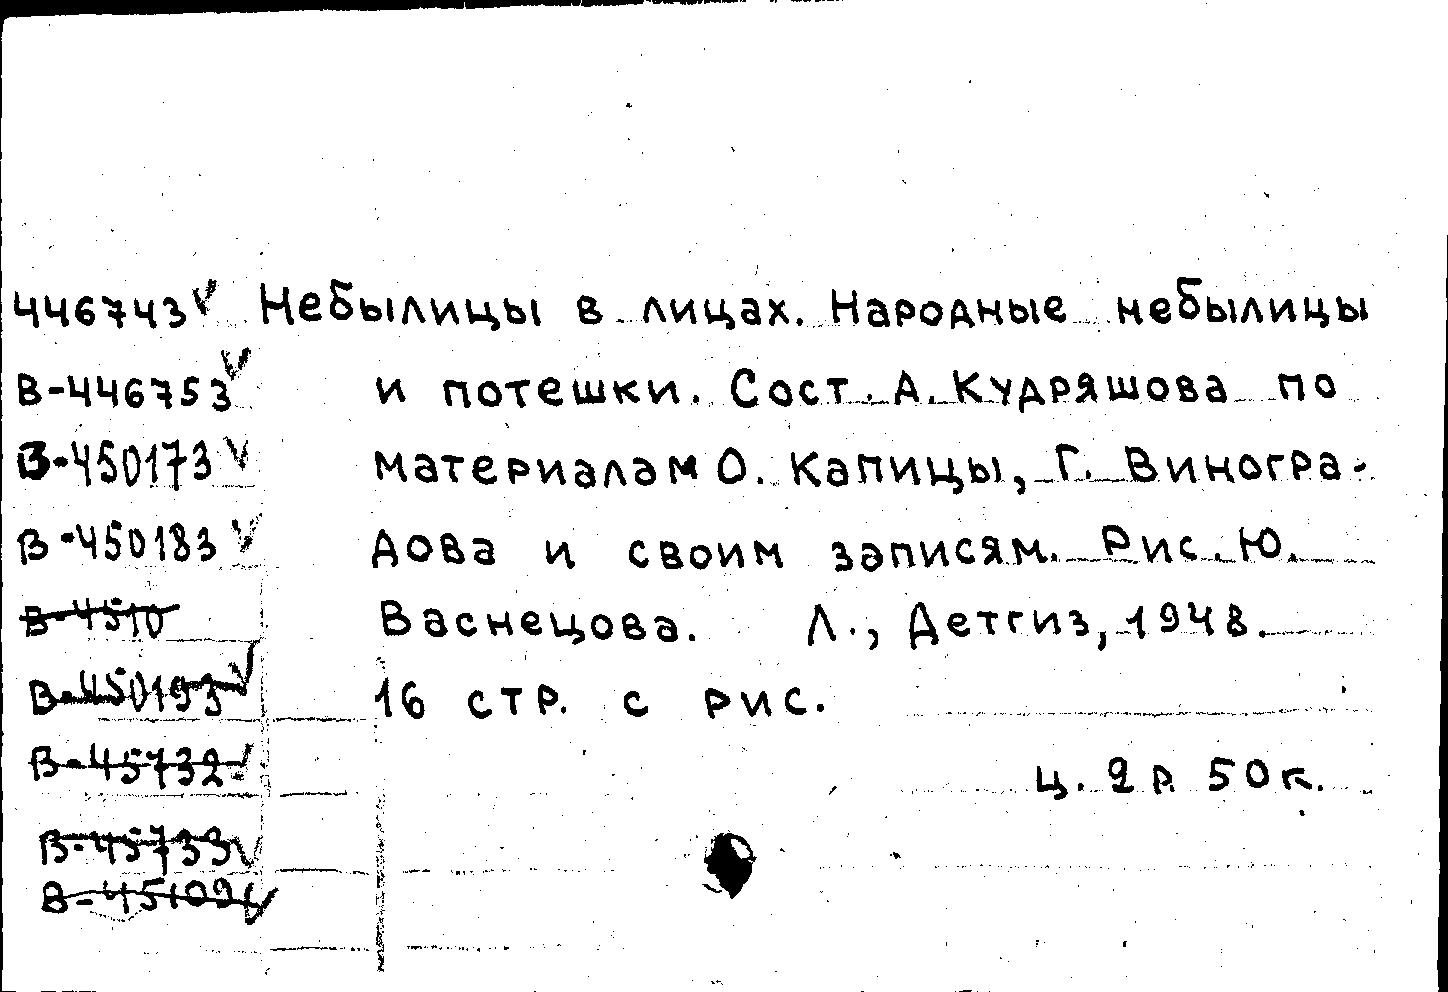 446743 Небылицы в лицах. Народные небылицы
В-446753 и потешки. Сост. А. Кудряшова по
В-450173 материалам О. Капицы, Г. Виногра-
В-450183 дова и своим записям. Рис. Ю.
В-4510 Васнецова. Л., Детгиз, 1948.
В-450193 16 стр. с рис.
В-45732 ц. 2 р. 50 к.
В-45733